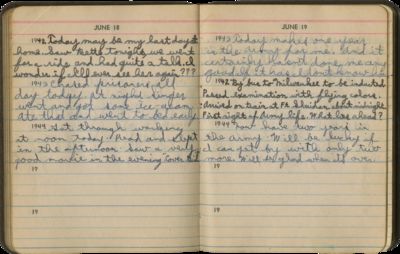 JUNE 18
1942 Today may be my last day at
home. Saw Betty tonight, we went
for a ride and had quite a talk. I
wonder if I'll ever see her again???
1943 Chased prisoners all
day today. At night Singer
went and got some ice cream
ate that and went to bed early
1944 Got through working
at noon today. Read and slept
in the afternoon. Saw a very
good movie in the evening
19
19
JUNE 19
1943 Today makes one year
in the army for me. And it
certainly hasn't done me any
good if it has I don't know it.
1942 By bus to Milwaukee to be inducted
Passed examination with flying colors
Arrived on train at Ft. Sheridan at midnight
First night of Army life. What lies ahead?
1944 Now have two years in
the army. Will be lucky if
I can get by with only two
more. Will be glad when it's over.
19
19